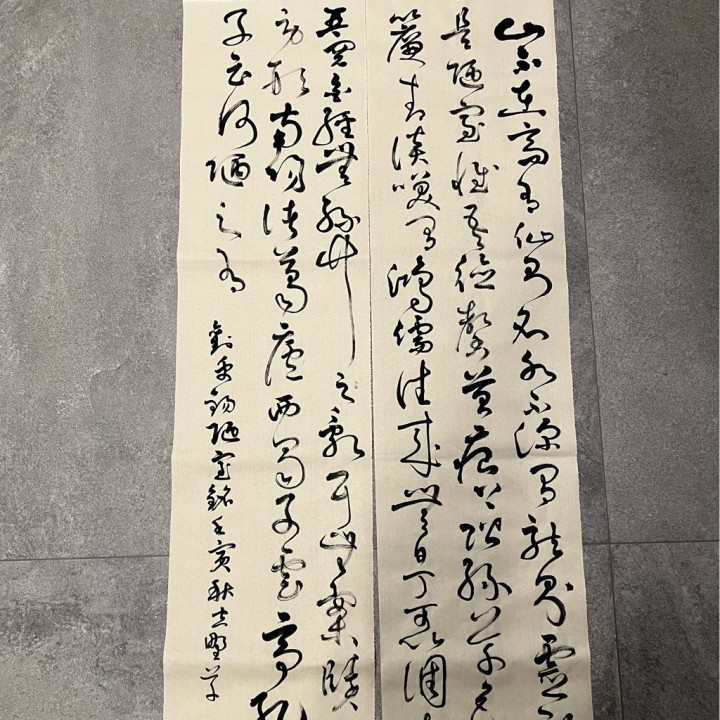 山不在高有仙則名水不深有龍則靈
是陋室惟吾德馨苔痕上階綠草色
簾青談笑有鴻儒往來無白丁可以調
琴閱金經無絲竹之亂耳無案牘
勞形南陽諸葛廬西蜀子雲亭孔
子云何陋之有
劉禹錫陋室銘壬寅秋